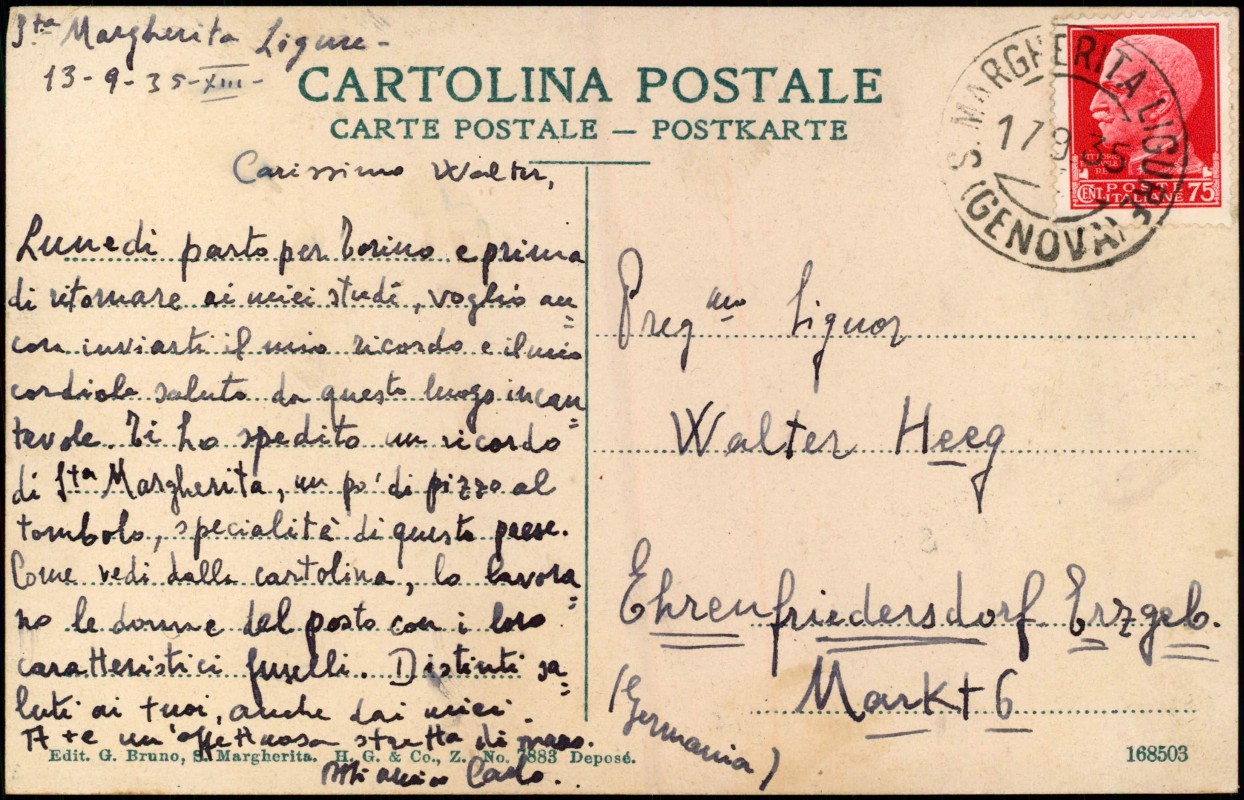 S.ta Margherita Ligure -
13-9-35-XIII-
CARTOLINA POSTALE
CARTE POSTALE — POSTKARTE
S. MARGHERITA LIGURE
17 9 35
(GENOVA)
POSTE
ITALIANE
CENT. 75
Carissimo Walter,
Lunedi parto per Torino e prima
di ritornare ai miei studi, voglio an=
cora inviarti il mio ricordo e il mio
cordiale saluto da questo luogo incan=
tevole. Ti ho spedito un ricordo
di S.ta Margherita, un po' di pizzo al
tombolo, specialità di questo paese.
Come vedi dalla cartolina, lo lavora=
no le donne del posto con i loro
caratteristici fuselli. Distinti sa=
luti ai tuoi, anche dai miei.
A te un'affettuosa stretta di mano.
Carlo.
Preg.mo Signor
Walter Heeg
Ehrenfriedersdorf Erzgeb.
Markt 6
(Germania)
Edit. G. Bruno, S. Margherita. H. G. & Co., Z. No. 7883 Deposé.
168503